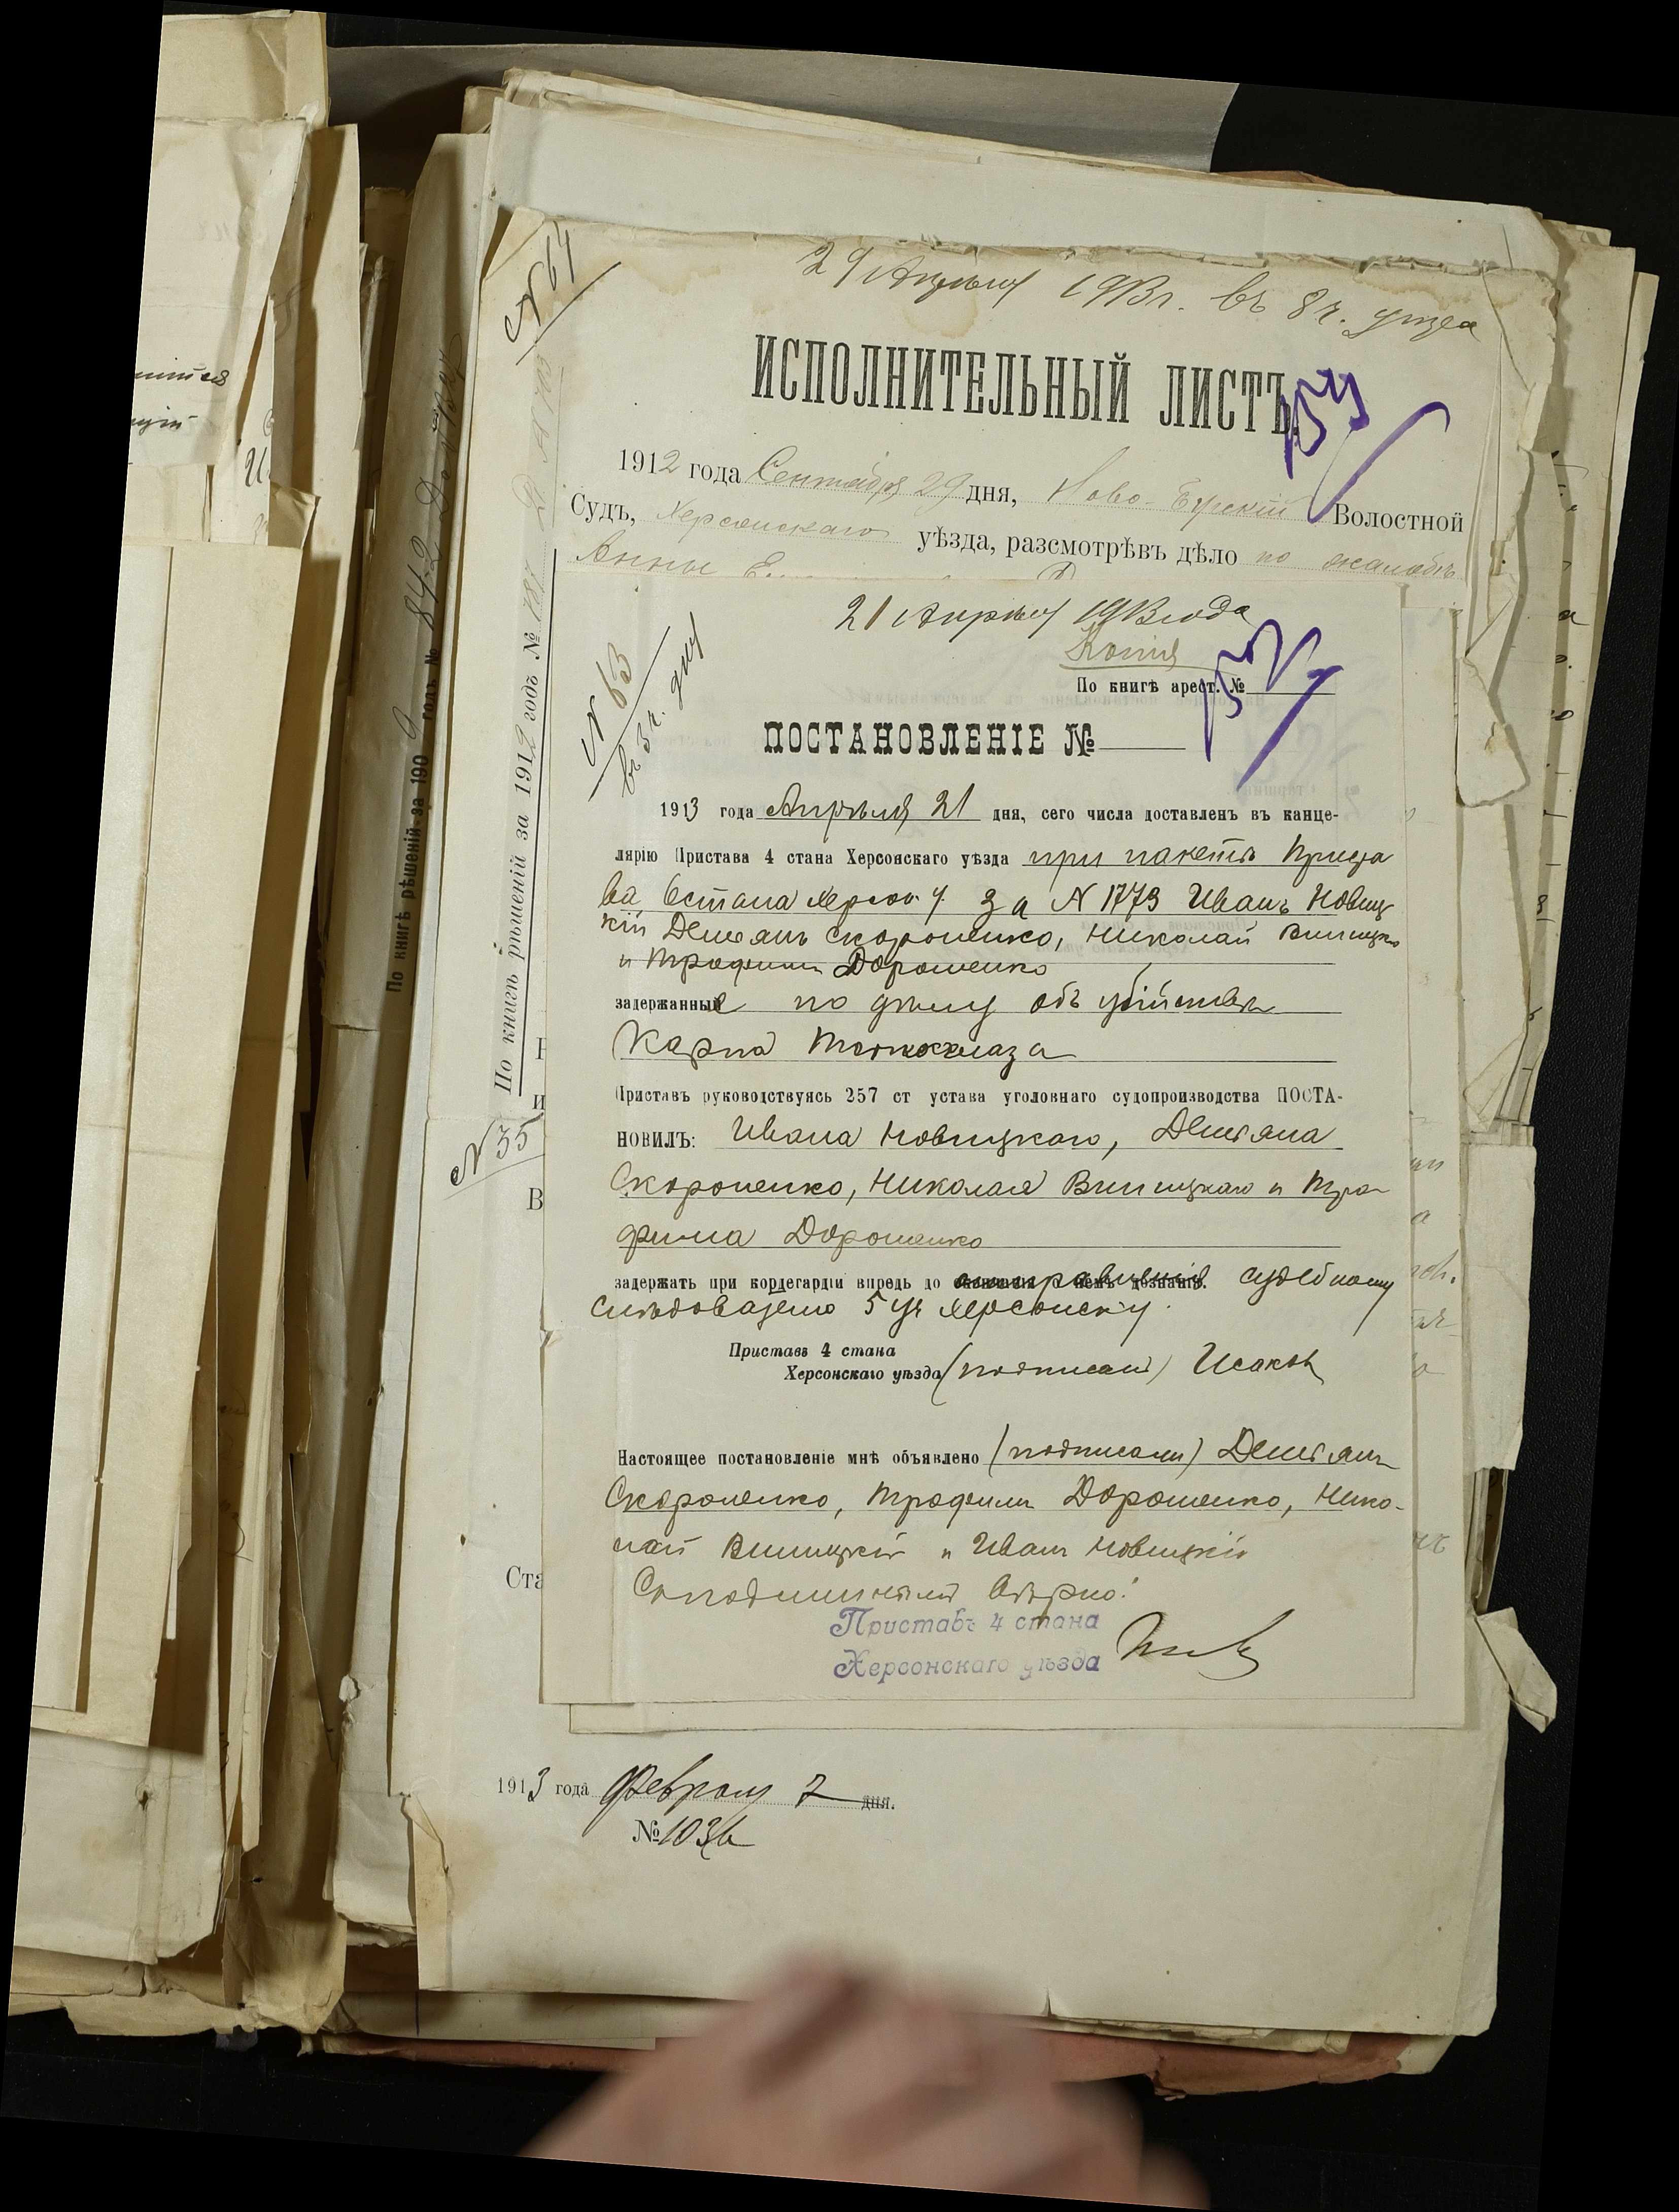 29 Апрѣля 1913г. въ 8 ч. утра
№ 64
ИСПОЛНИТЕЛЬНЫЙ ЛИСТЪ
1912 года Сентября 29 дня, Ново- Бугскій Волостной
Судъ, Херсонскаго уѣзда, разсмотрѣвъ дѣло по жалобѣ
Анны
21 Апрѣля 1913 года
Копія
По книгѣ арест. №
№ 63
въ 3 ч. дня
ПОСТАНОВЛЕНІЕ №
1913 года Апрѣля 21 дня, сего числа доставленъ въ канце-
лярію Пристава 4 стана Херсонскаго уѣзда при пакетѣ Приста
ва 6 стана Херсон у. за № 1773 Иванъ Новиц
кій Демьянъ Скороченко, Николай Виницкій
и Трофимъ Дорошенко
задержанные по дѣлу объ убійствѣ
Карпа
Приставъ руководствуясь 257 ст устава уголовнаго судопроизводства ПОСТА-
НОВИЛЪ: Ивана Новицкаго, Демьяна
Скороченко, Николая Виницкаго и Тро
фима Дорошенко
задержать при кордегардіи впредь до отправленія судебному
слѣдователю 5 уч Херсонск у.
Приставъ 4 стана
Херсонскаго уѣзда (подписалъ) Исаковъ
Настоящее постановленіе мнѣ объявлено (подписали) Демьянъ
Скороченко, Трофимъ Дорошенко, Нико-
лай Виницкій и Иванъ Новицкій
Съ подлиннымъ вѣрно:
Приставъ 4 стана
Херсонскаго уѣзда
По книгѣ рѣшеній за 1912 годъ № 187
По книгѣ рѣшеній за 1909 годъ № 842
№ 35
Ста
1913 года Февраля 7 дня.
№ 1036